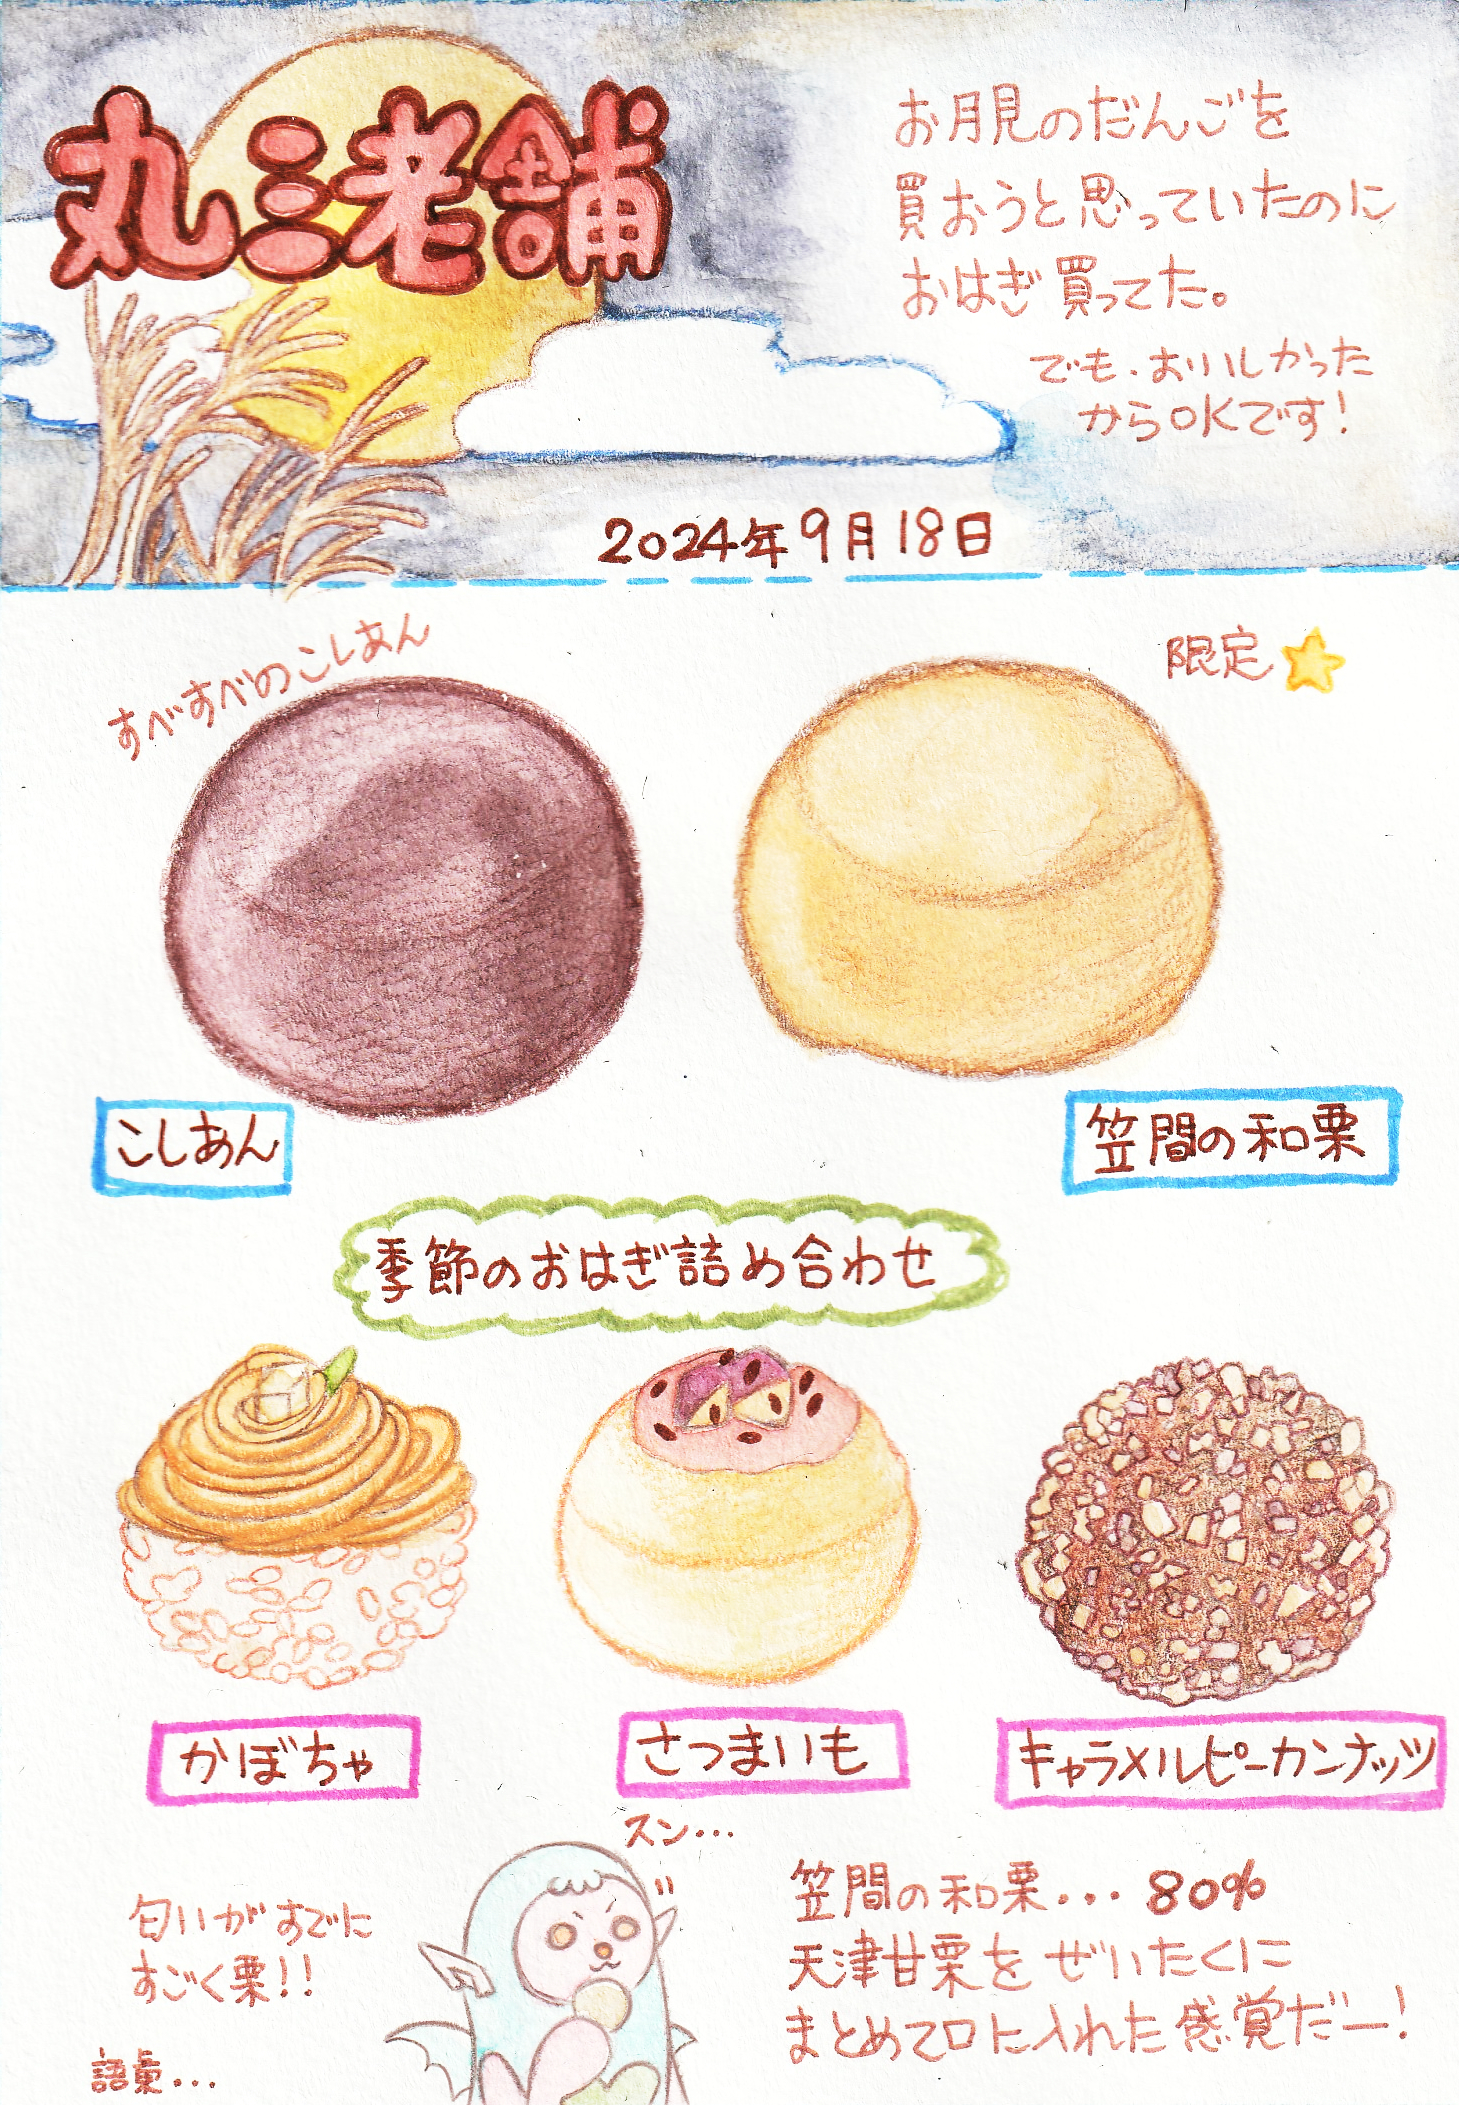 丸三老舗
お月見のだんごを
買おうと思っていたのに
おはぎ買ってた。
でも、おいしかった
からOKです!
2024年9月18日
すべすべのこしあん
限定
こしあん
笠間の和栗
季節のおはぎ詰め合わせ
かぼちゃ
さつまいも
キャラメルピーカンナッツ
スン…
匂いがすでに
すごく栗!!
語彙…
笠間の和栗…80%
天津甘栗をぜいたくに
まとめて口に入れた感覚だー!